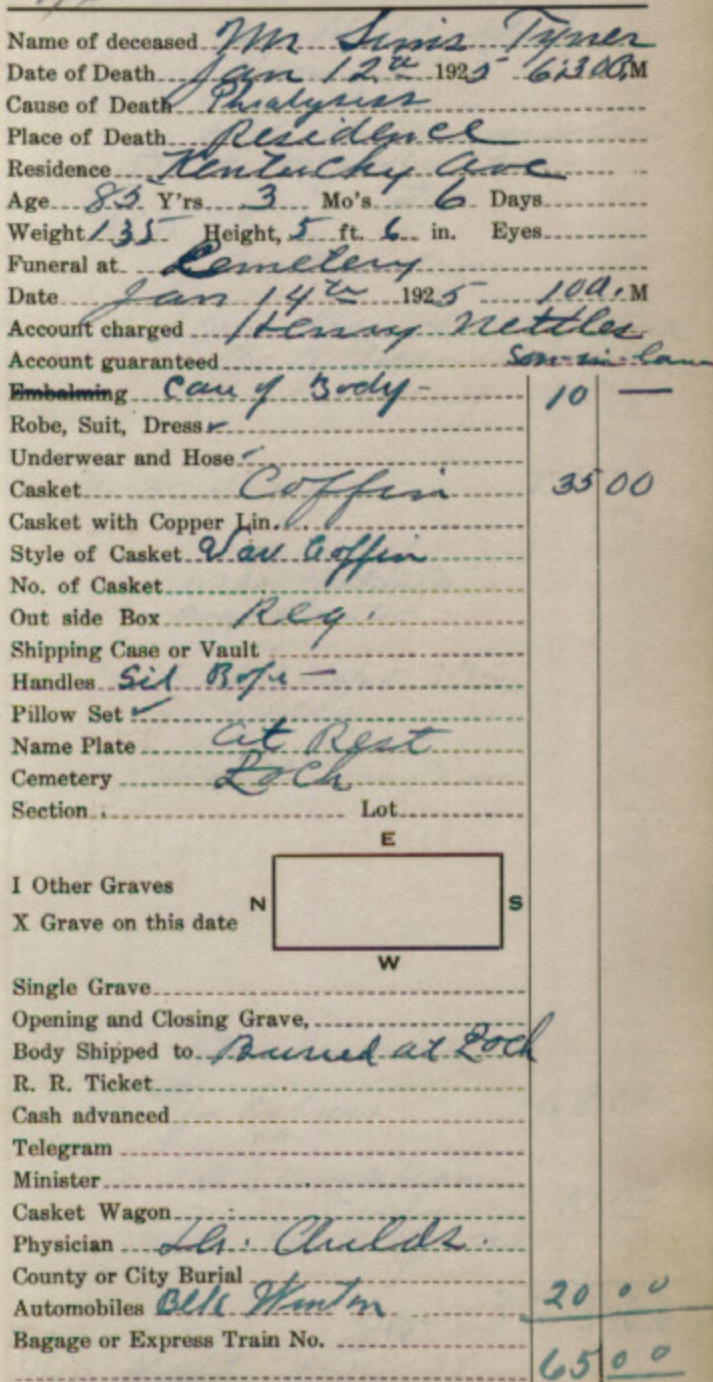 Name of deceased Mr Sims Tyner
Date of Death Jan 12th 1925 6:30 P.M
Cause of Death Phralysiss
Place of Death Residence
Residence Kentucky Ave
Age 85 Y'rs 3 Mo's 6 Days
Weight 135 Height, 5 ft. 6 in. Eyes
Funeral at Cemetery
Date Jan 14th 1925 10 a. M
Account charged Henry Nettles
Account guaranteed Son-in-law
Embalming Care of Body - 10 —
Robe, Suit, Dress ✓
Underwear and Hose ✓
Casket Coffin 35 00
Casket with Copper Lin.
Style of Casket Var Coffin
No. of Casket
Out side Box Reg.
Shipping Case or Vault
Handles Sil Rope —
Pillow Set ✓
Name Plate at Rest
Cemetery Zoch
Section Lot
E
I Other Graves
N S
X Grave on this date
W
Single Grave
Opening and Closing Grave,
Body Shipped to Burried at Zoch
R. R. Ticket
Cash advanced
Telegram
Minister
Casket Wagon
Physician Dr. Childs.
County or City Burial
Automobiles Blk Winton 20 00
Bagage or Express Train No.
65 00